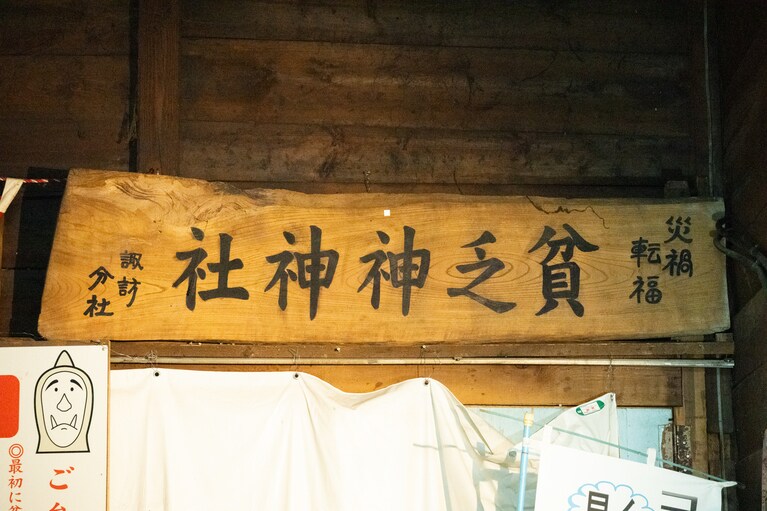 災禍
転福
貧乏神神社
諏訪
分社
ご
◎最初に